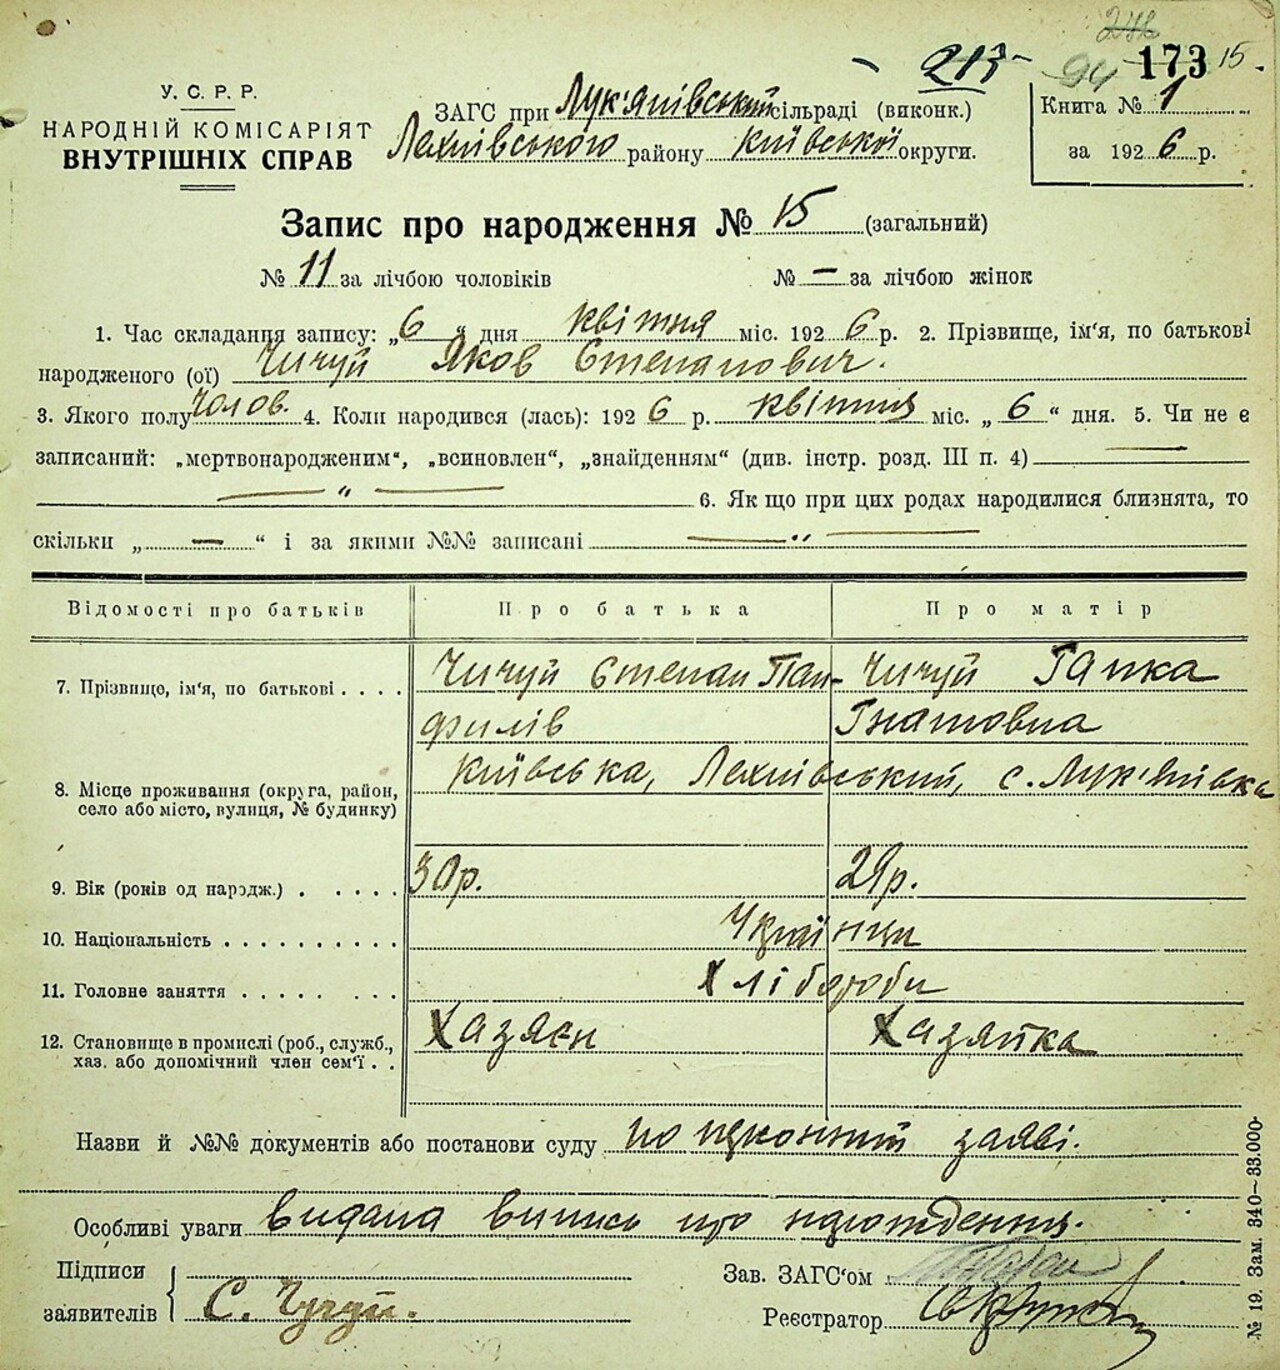 213 94 173 15
У. С. Р. Р.
НАРОДНІЙ КОМІСАРІЯТ
ВНУТРІШНІХ СПРАВ
ЗАГС при Лук'янівський сільраді (виконк.)
Лехнівського району Київської округи.
Книга № 1
за 1926 р.
Запис про народження № 15 (загальний)
№ 11 за лічбою чоловіків № — за лічбою жінок
1. Час складання запису: „6“ дня квітня міс. 1926 р. 2. Прізвище, ім'я, по батькові
народженого (ої) Чичуй Яков Степанович.
3. Якого полу Чолов. 4. Коли народився (лась): 1926 р. квітня міс. „6“ дня. 5. Чи не є
записаний: „мертвонародженим“, „всиновлен“, „знайденням“ (див. інстр. розд. III п. 4) —
— „ — 6. Як що при цих родах народилися близнята, то
скільки „ — “ і за якими №№ записані — „ —
Відомості про батьків Про батька Про матір
7. Прізвище, ім'я, по батькові . . . . Чичуй Степан Пан- Чичуй Гапка
филів Гнатовна
8. Місце проживання (округа, район,
село або місто, вулиця, № будинку)
Київська, Лехнівський, с. Лук'янівка
9. Вік (років од народж.) . . . . . 30р. 29р.
10. Національність . . . . . . . . . . Українци
11. Головне заняття . . . . . . . . Хлібороби
12. Становище в промислі (роб., служб.,
хаз. або допомічний член сем'ї . .
Хазяєн Хазяйка
Назви й №№ документів або постанови суду по заяві.
Особливі уваги видана випись про народження.
Підписи
заявителів С. Чучуй.
Зав. ЗАГС'ом
Реєстратор
№ 19. Зам. 340—33.000